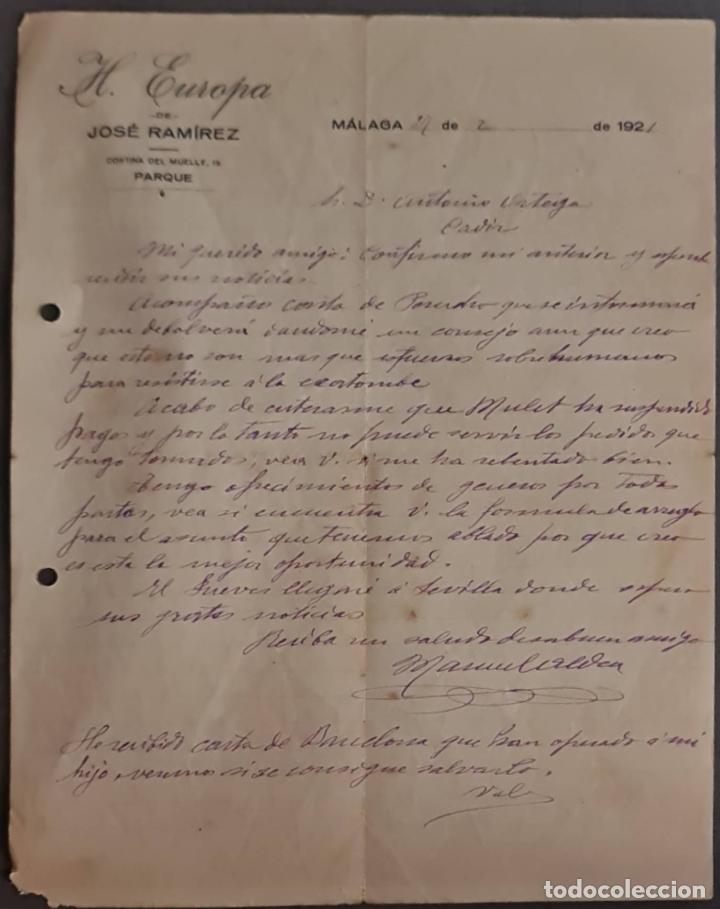 H. Europa
DE
JOSÉ RAMÍREZ
CORTINA DEL MUELLE, 15
PARQUE
MÁLAGA de 2 de 1921
Sr. D. Antonio Ortega
Cadiz
Mi querido amigo: Confirmo mi anterior y espero
recibir sus noticias.
Acompaño carta de que se intormará
y me debolverá dandome un consejo aunque creo
que esto no son mas que esfuerzos sobrehumanos
para resistirse á la
Acabo de enterarme que Mulet ha suspendido
pagos y por lo tanto no puede servir los pedidos que
tengo tomados, vea V. si me ha rebentado bien.
Tengo ofrecimientos de generos por todas
partes, vea si encuentra V. la formula de arreglo
para el asunto que tenemos ablado por que creo
es esta la mejor oportunidad.
El Jueves llegaré á Sevilla donde espero
sus gratas noticias
Reciba un saludo de su buen amigo
Manuel Aldea
He recibido carta de Barcelona que han operado á mi
hijo, veremos si se consigue salvarlo.
Vale
todocoleccion